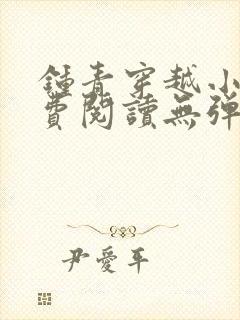 鍾青穿越小
費閱讀無彈
尹愛平